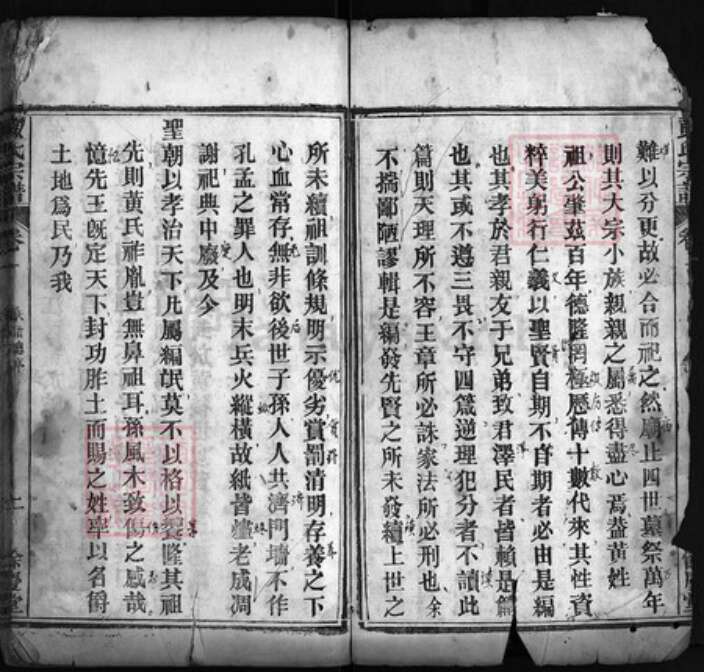 難以分更故必合而祀之然廟止四世墓祭萬年
則其大宗小族親親之屬悉得盡心焉葢黄姓
祖公肇兹百年德隆罔極歷傳十數代來其性資
粹美躬行仁義以聖賢自期不自期者必由是編
也其孝於君親友于兄弟致君澤民者皆賴是篇
也其或不遵三畏不守四箴逆理犯分者不讀此
篇則天理所不容王章所必誅家法所必刑也余
不揣鄙陋謬輯是編發先賢之所未發續上世之
所未續祖訓條規明示優劣賞罰清明存養之下
心血常存無非欲後世子孫人人共濟門墻不作
孔孟之罪人也明末兵火縱橫故紙皆燼老成凋
謝祀典中廢及今
聖朝以孝治天下凡屬編氓莫不以格以饗隆其祖
先則黄氏祚胤豈無鼻祖耳孫風木致傷之感哉
憶先王旣定天下封功胙土而賜之姓率以名爵
土地爲民乃我
氏宗譜
卷一
餘慶堂